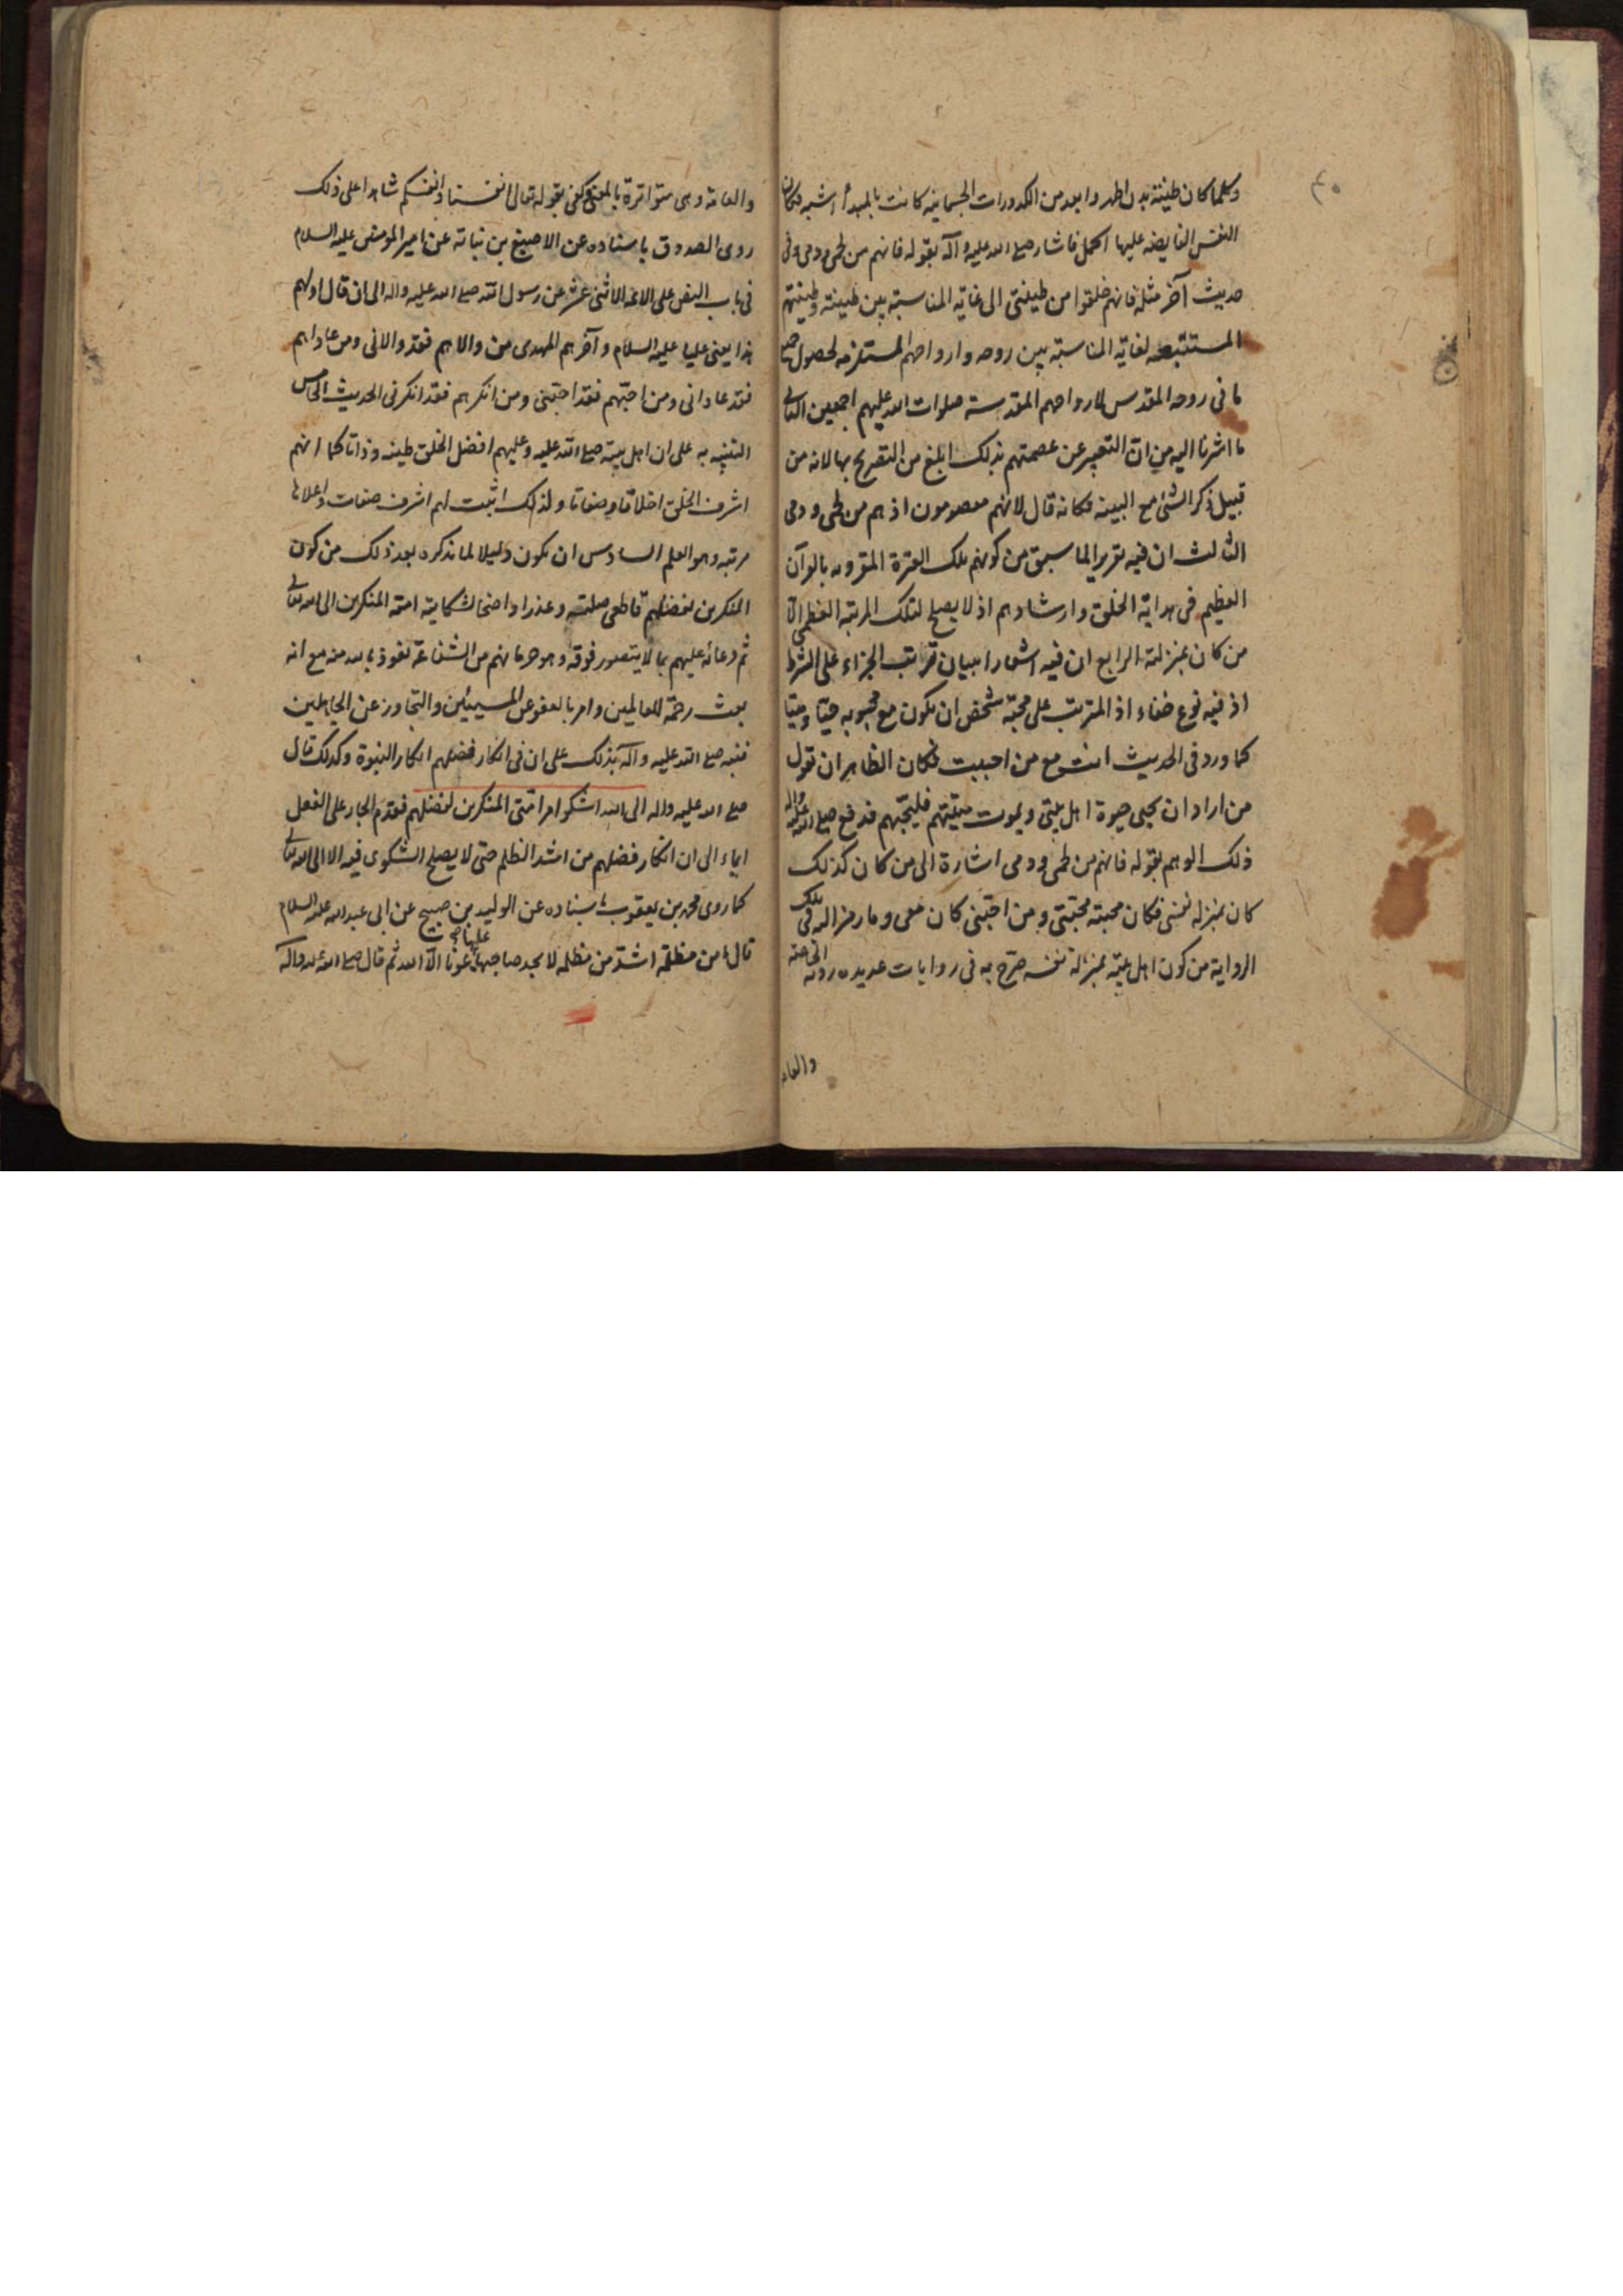 ٤٠
وكلما كان طينة بدن اطهر وابعد من الكدورات الجسمانية كانت بالمبدأ اشبه فكان
النفس الفايضه عليها اكمل فاشار صلى الله عليه وآله بقوله فانهم من لحمي ودمي وفي
حديث آخر مثله فانهم خلقوا من طينتي الى غاية المناسبة بين طينته وطينتهم
المستتبعه لغاية المناسبة بين روحه وارواحهم المستلزمه لحصول جميع
ما في روحه المقدس لارواحهم المقدسة صلوات الله عليهم اجمعين الثاني
ما اشرنا اليه من ان التعبير عن عصمتهم بذلك ابلغ من التصريح بها لانه من
قبيل ذكر الشئ مع البينه فكانه قال لانهم معصومون اذ هم من لحمي ودمي
الثالث ان فيه تقريرا لما سبق من كونهم تلك العترة المقرونه بالقرآن
العظيم في هداية الخلق وارشادهم اذ لا يصلح لتلك المرتبة العظمى الا
من كان بمنزلته الرابع ان فيه اشعارا ببيان ترتب الجزاء على الشرط
اذ فيه نوع خفاء اذ المترتب على محبة شخص ان يكون مع محبوبه حيا وميتا
كما ورد في الحديث انت مع من احببت فكان الظاهر ان تقول
من اراد ان يحيى حيوة اهل بيتي ويموت ميتتهم فليحبهم فدفع صلى الله عليه وآله
ذلك الوهم بقوله فانهم من لحمي ودمي اشارة الى من كان كذلك
كان بمنزله نفسي فكان محبته محبتي ومن احبني كان معي وما رمز اليه في تلك
الرواية من كون اهل بيته بمنزلة نفسه صرح به في روايات عديده روته الخاصه
والعامة
والعامة وهي متواترة بالمعنى وكفى بقوله تعالى انفسنا وانفسكم شاهدا على ذلك
روى الصدوق باسناده عن الاصبغ بن نباته عن امير المومنين عليه السلام
في باب النص على الائمة الاثني عشر عن رسول الله صلى الله عليه واله الى ان قال اولهم
هذا يعني عليا عليه السلام وآخرهم المهدى من والاهم فقد والاني ومن عاداهم
فقد عاداني ومن احبهم فقد احبني ومن انكرهم فقد انكرني الحديث الخامس
التنبيه به على ان اهل بيته صلى الله عليه وعليهم افضل الخلق طينه وذاتا كما انهم
اشرف الخلق اخلاقا وصفاتا ولذلك اثبت لهم اشرف صفات واعلاها
مرتبه وهو العلم السادس ان يكون دليلا لما نذكره بعد ذلك من كون
المنكرين لفضلهم قاطعي صلته وعذرا واضحا لشكايته امته المنكرين الى الله تعالى
ثم دعائه عليهم بما لا يتصور فوقه وهو حرمانهم من الشفاعة نعوذ بالله منه مع انه
بعث رحمة للعالمين وامر بالعفو عن المسيئين والتجاوز عن الجاهلين
فنبه صلى الله عليه وآله بذلك على ان في انكار فضلهم انكار النبوة وكذلك قال
صلى الله عليه واله الى الله اشكو امر امتي المنكرين لفضلهم فقدم الجار على الفعل
ايماء الى ان انكار فضلهم من اشد الظلم حتى لا يصلح الشكوى فيه الا الى الله تعالى
كما روى محمد بن يعقوب باسناده عن الوليد بن صبيح عن ابي عبد الله عليه السلام
قال ما من مظلمة اشد من مظلمه لا يجد صاحبها عليها عونا الا الله ثم قال صلى الله عليه وآله